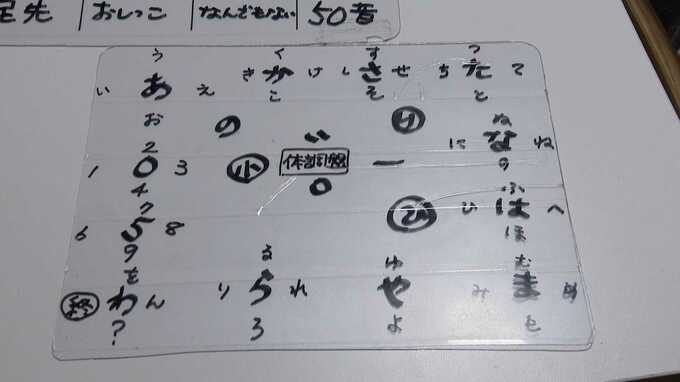 足先 おしっこ なんでもない 50音
う く す つ
い あ え き か け し さ せ ち た て
お こ そ と
の ゛ ぬ
に な ね
2 の
1 0 3 小 一
4 ゜ ふ
7 ひ は へ
6 5 8 ほ
9 る ゆ む
を
終 わ ん り ら れ や み ま め
? ろ よ も